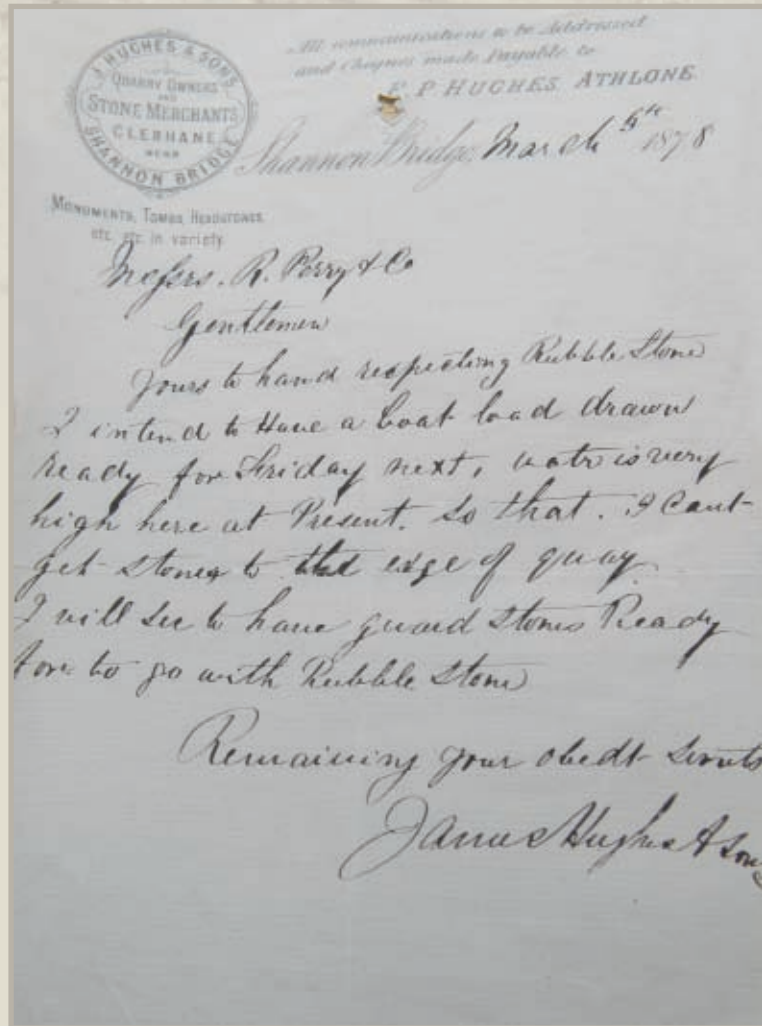 J HUGHES & SONS
QUARRY OWNERS
AND
STONE MERCHANTS
CLERHANE
NEAR
SHANNON BRIDGE
MONUMENTS, TOMBS, HEADSTONES,
etc. etc. in variety.
All communications to be Addressed
and Cheques made Payable to
P. HUGHES, ATHLONE.
Shannon Bridge, March 5th 1878
Messrs. R. Perry & Co
Gentlemen
Yours to hand respecting Rubble Stone
I intend to Have a boat load drawn
ready for Friday next, water is very
high here at Present. So that. I Cant
get stones to the edge of quay
I will see to have guard stones Ready
for to go with Rubble Stone
Remaining your obedt Servts
James Hughes & Sons